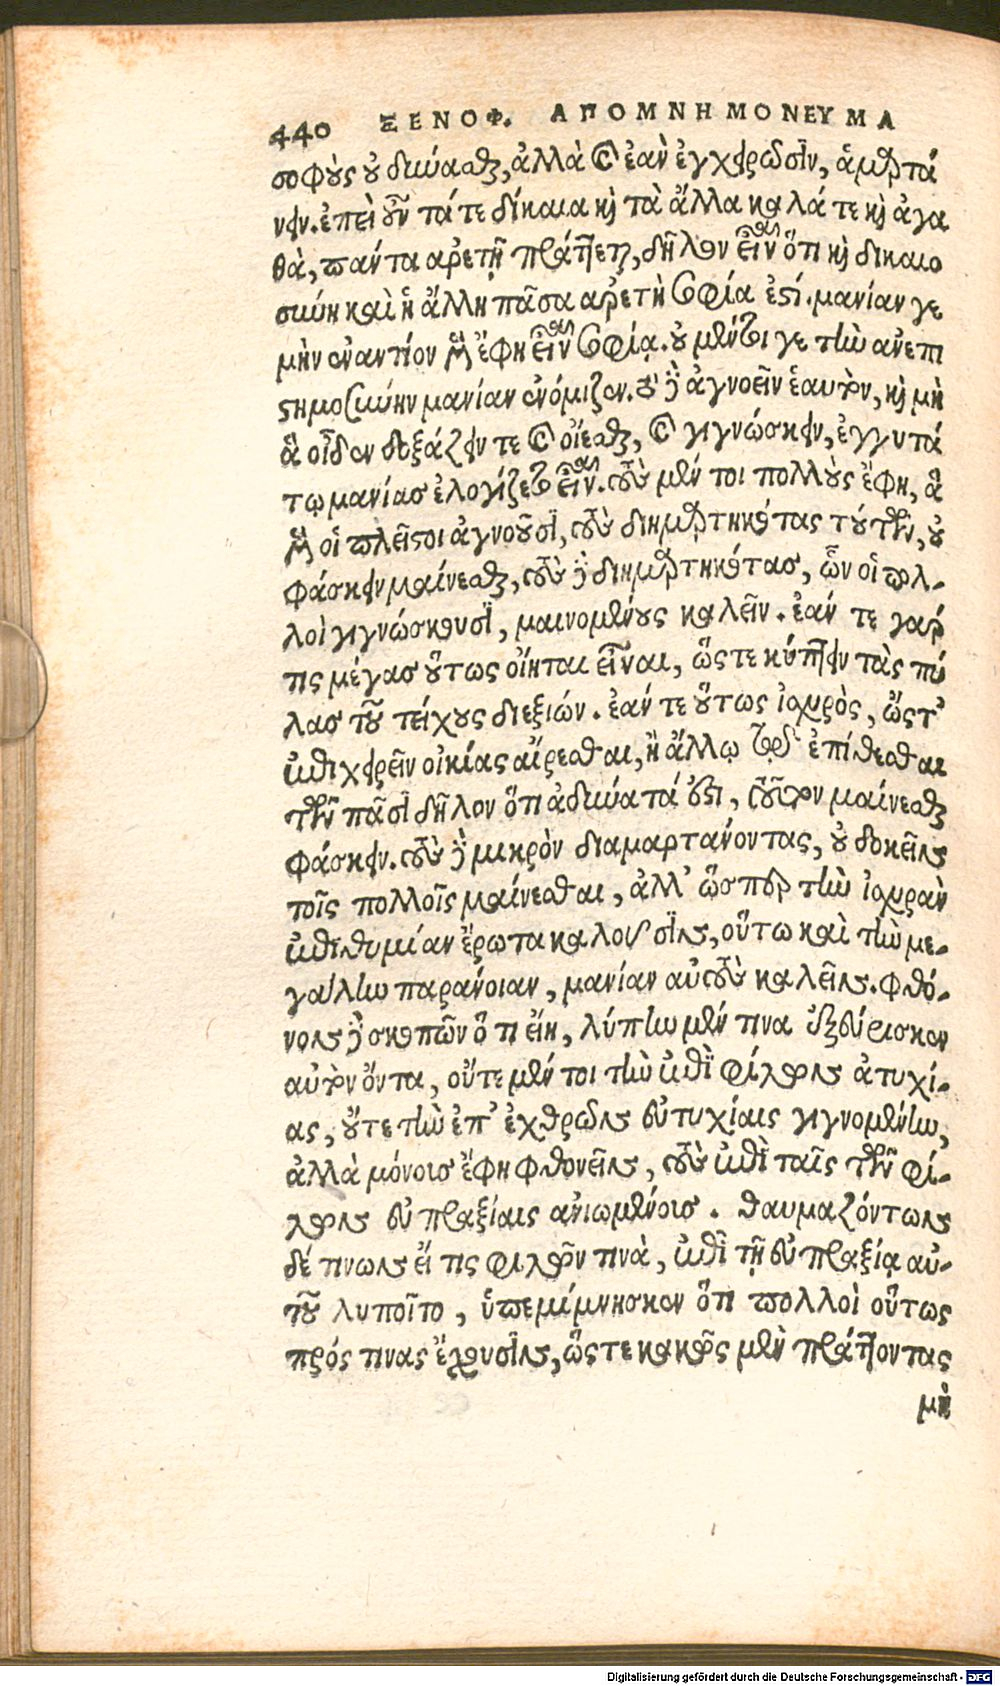 440 ΞΕΝΟΦ. ΑΠΟΜΝΗΜΟΝΕΥΜΑ
σοφοὺς οὐ δύνασθαι, ἀλλὰ καὶ ἐὰν ἐγχειρῶσιν, ἁμαρτά
νειν. ἐπεὶ οὖν τά τε δίκαια καὶ τὰ ἄλλα καλά τε καὶ ἀγα
θὰ, πάντα ἀρετῇ πράττεται, δῆλον εἶναι ὅτι καὶ δικαιο
σύνη καὶ ἡ ἄλλη πᾶσα ἀρετὴ σοφία ἐστί. μανίαν γε
μὴν ἐναντίον μὲν ἔφη εἶναι σοφίᾳ. οὐ μέντοι γε τὴν ἀνεπι
στημοσύνην μανίαν ἐνόμιζεν. τὸ δὲ ἀγνοεῖν ἑαυτὸν, καὶ μὴ
ἃ οἶδεν δοξάζειν τε καὶ οἴεσθαι, καὶ γιγνώσκειν, ἐγγυτά
τω μανίας ἐλογίζετο εἶναι. τοὺς μέν τοι πολλοὺς ἔφη, ἃ
μὲν οἱ πλεῖστοι ἀγνοοῦσι, τοὺς διημαρτηκότας τούτων, οὐ
φάσκειν μαίνεσθαι, τοὺς δὲ διημαρτηκότας, ὧν οἱ πολ-
λοὶ γιγνώσκουσι, μαινομένους καλεῖν. ἐάν τε γάρ
τις μέγας οὕτως οἴηται εἶναι, ὥστε κύπτειν τὰς πύ
λας τοῦ τείχους διεξιών. ἐάν τε οὕτως ἰσχυρὸς, ὥστ'
ἐπιχειρεῖν οἰκίας αἴρεσθαι, ἢ ἄλλῳ τῳ ἐπίθεσθαι
τῶν πᾶσι δῆλον ὅτι ἀδύνατά ἐστι, τοῦτον μαίνεσθαι
φάσκειν. τοὺς δὲ μικρὸν διαμαρτάνοντας, οὐ δοκεῖν
τοῖς πολλοῖς μαίνεσθαι, ἀλλ' ὥσπερ τὴν ἰσχυρὰν
ἐπιθυμίαν ἔρωτα καλοῦσιν, οὕτω καὶ τὴν με-
γάλην παράνοιαν, μανίαν αὐτοὺς καλεῖν. φθό-
νον δὲ σκοπῶν ὅ τι εἴη, λύπην μέν τινα ἐξεύρισκεν
αὐτὸν ὄντα, οὔτε μέν τοι τὴν ἐπὶ φίλων ἀτυχί-
ας, οὔτε τὴν ἐπ' ἐχθρῶν εὐτυχίαις γιγνομένην,
ἀλλὰ μόνοις ἔφη φθονεῖν, τοὺς ἐπὶ ταῖς τῶν φί-
λων εὐπραξίαις ἀνιωμένοις. θαυμαζόντων
δέ τινων εἴ τις φιλῶν τινὰ, ἐπὶ τῇ εὐπραξίᾳ αὐ-
τοῦ λυποῖτο, ὑπεμίμνησκεν ὅτι πολλοὶ οὕτως
πρός τινας ἔχουσιν, ὥστε κακῶς μὲν πράττοντας
μὴ
Digitalisierung gefördert durch die Deutsche Forschungsgemeinschaft - DFG